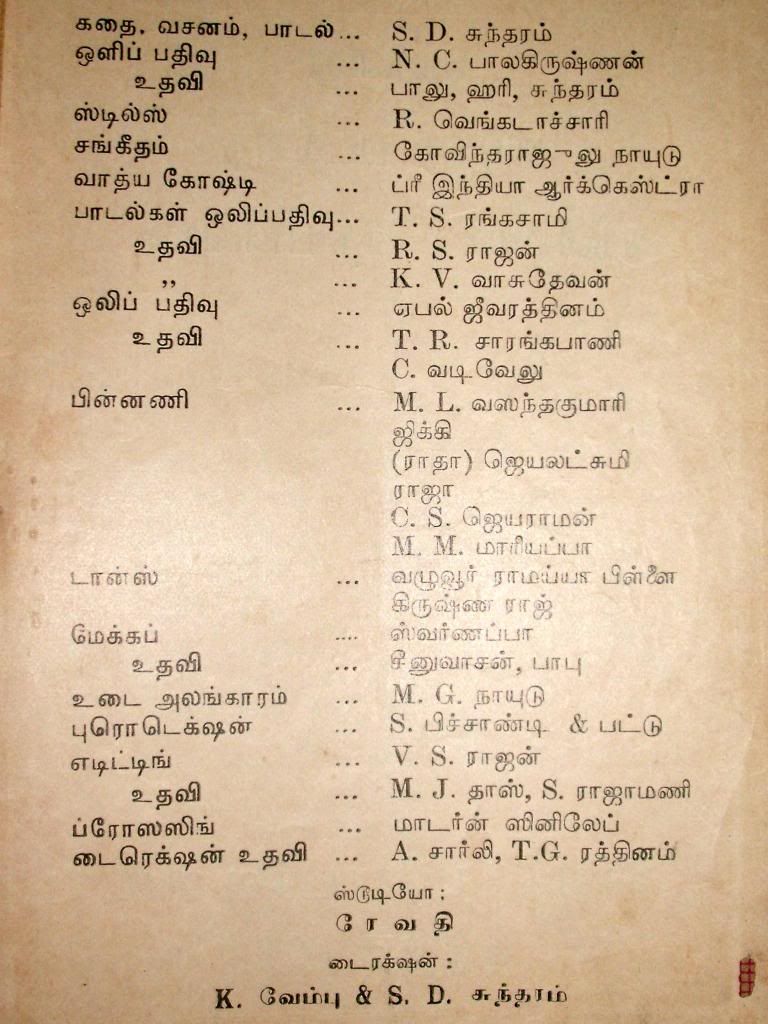 கதை, வசனம், பாடல் ... S. D. சுந்தரம்
ஒளிப் பதிவு ... N. C. பாலகிருஷ்ணன்
உதவி ... பாலு, ஹரி, சுந்தரம்
ஸ்டில்ஸ் ... R. வெங்கடாச்சாரி
சங்கீதம் ... கோவிந்தராஜுலு நாயுடு
வாத்ய கோஷ்டி ... ப்ரீ இந்தியா ஆர்க்கெஸ்ட்ரா
பாடல்கள் ஒலிப்பதிவு ... T. S. ரங்கசாமி
உதவி ... R. S. ராஜன்
,, ... K. V. வாசுதேவன்
ஒலிப் பதிவு ... ஏபல் ஜீவரத்தினம்
உதவி ... T. R. சாரங்கபாணி
C. வடிவேலு
பின்னணி ... M. L. வஸந்தகுமாரி
ஜிக்கி
(ராதா) ஜெயலட்சுமி
ராஜா
C. S. ஜெயராமன்
M. M. மாரியப்பா
டான்ஸ் ... வழுவூர் ராமய்யா பிள்ளை
கிருஷ்ண ராஜ்
மேக்கப் .... ஸ்வர்ணப்பா
உதவி ... சீனுவாசன், பாபு
உடை அலங்காரம் ... M. G. நாயுடு
புரொடெக்ஷன் ... S. பிச்சாண்டி & பட்டு
எடிட்டிங் ... V. S. ராஜன்
உதவி ... M. J. தாஸ், S. ராஜாமணி
ப்ரோஸஸிங் ... மாடர்ன் ஸினிலேப்
டைரெக்ஷன் உதவி ... A. சார்லி, T.G. ரத்தினம்
ஸ்டூடியோ :
ரேவதி
டைரக்ஷன் :
K. வேம்பு & S. D. சுந்தரம்